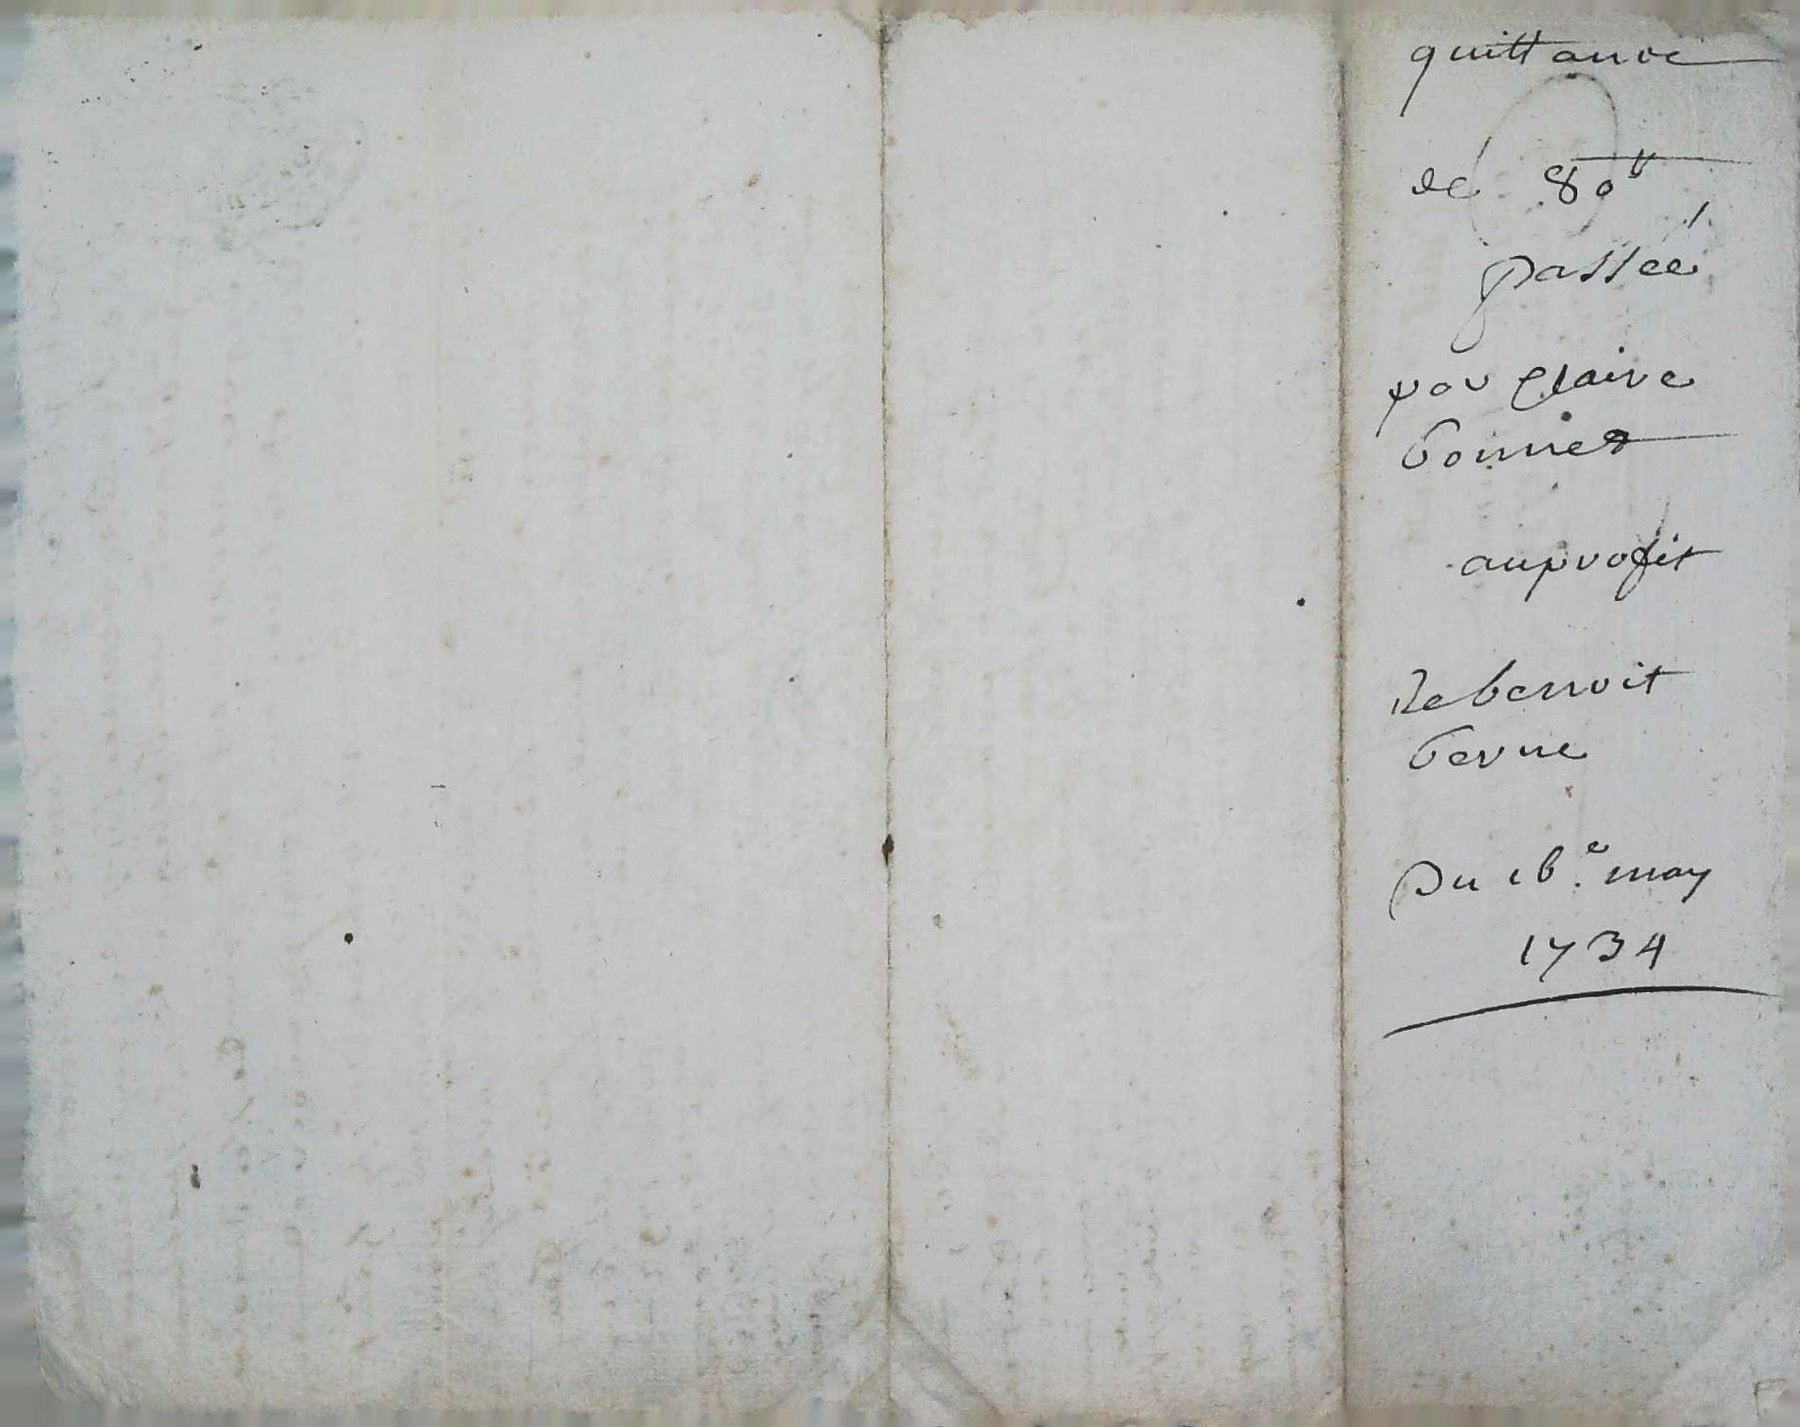 quittance
de 80 ₶
passée
par Claire
bonnet
au profit
de benoit
berne
Du 16.e may
1734